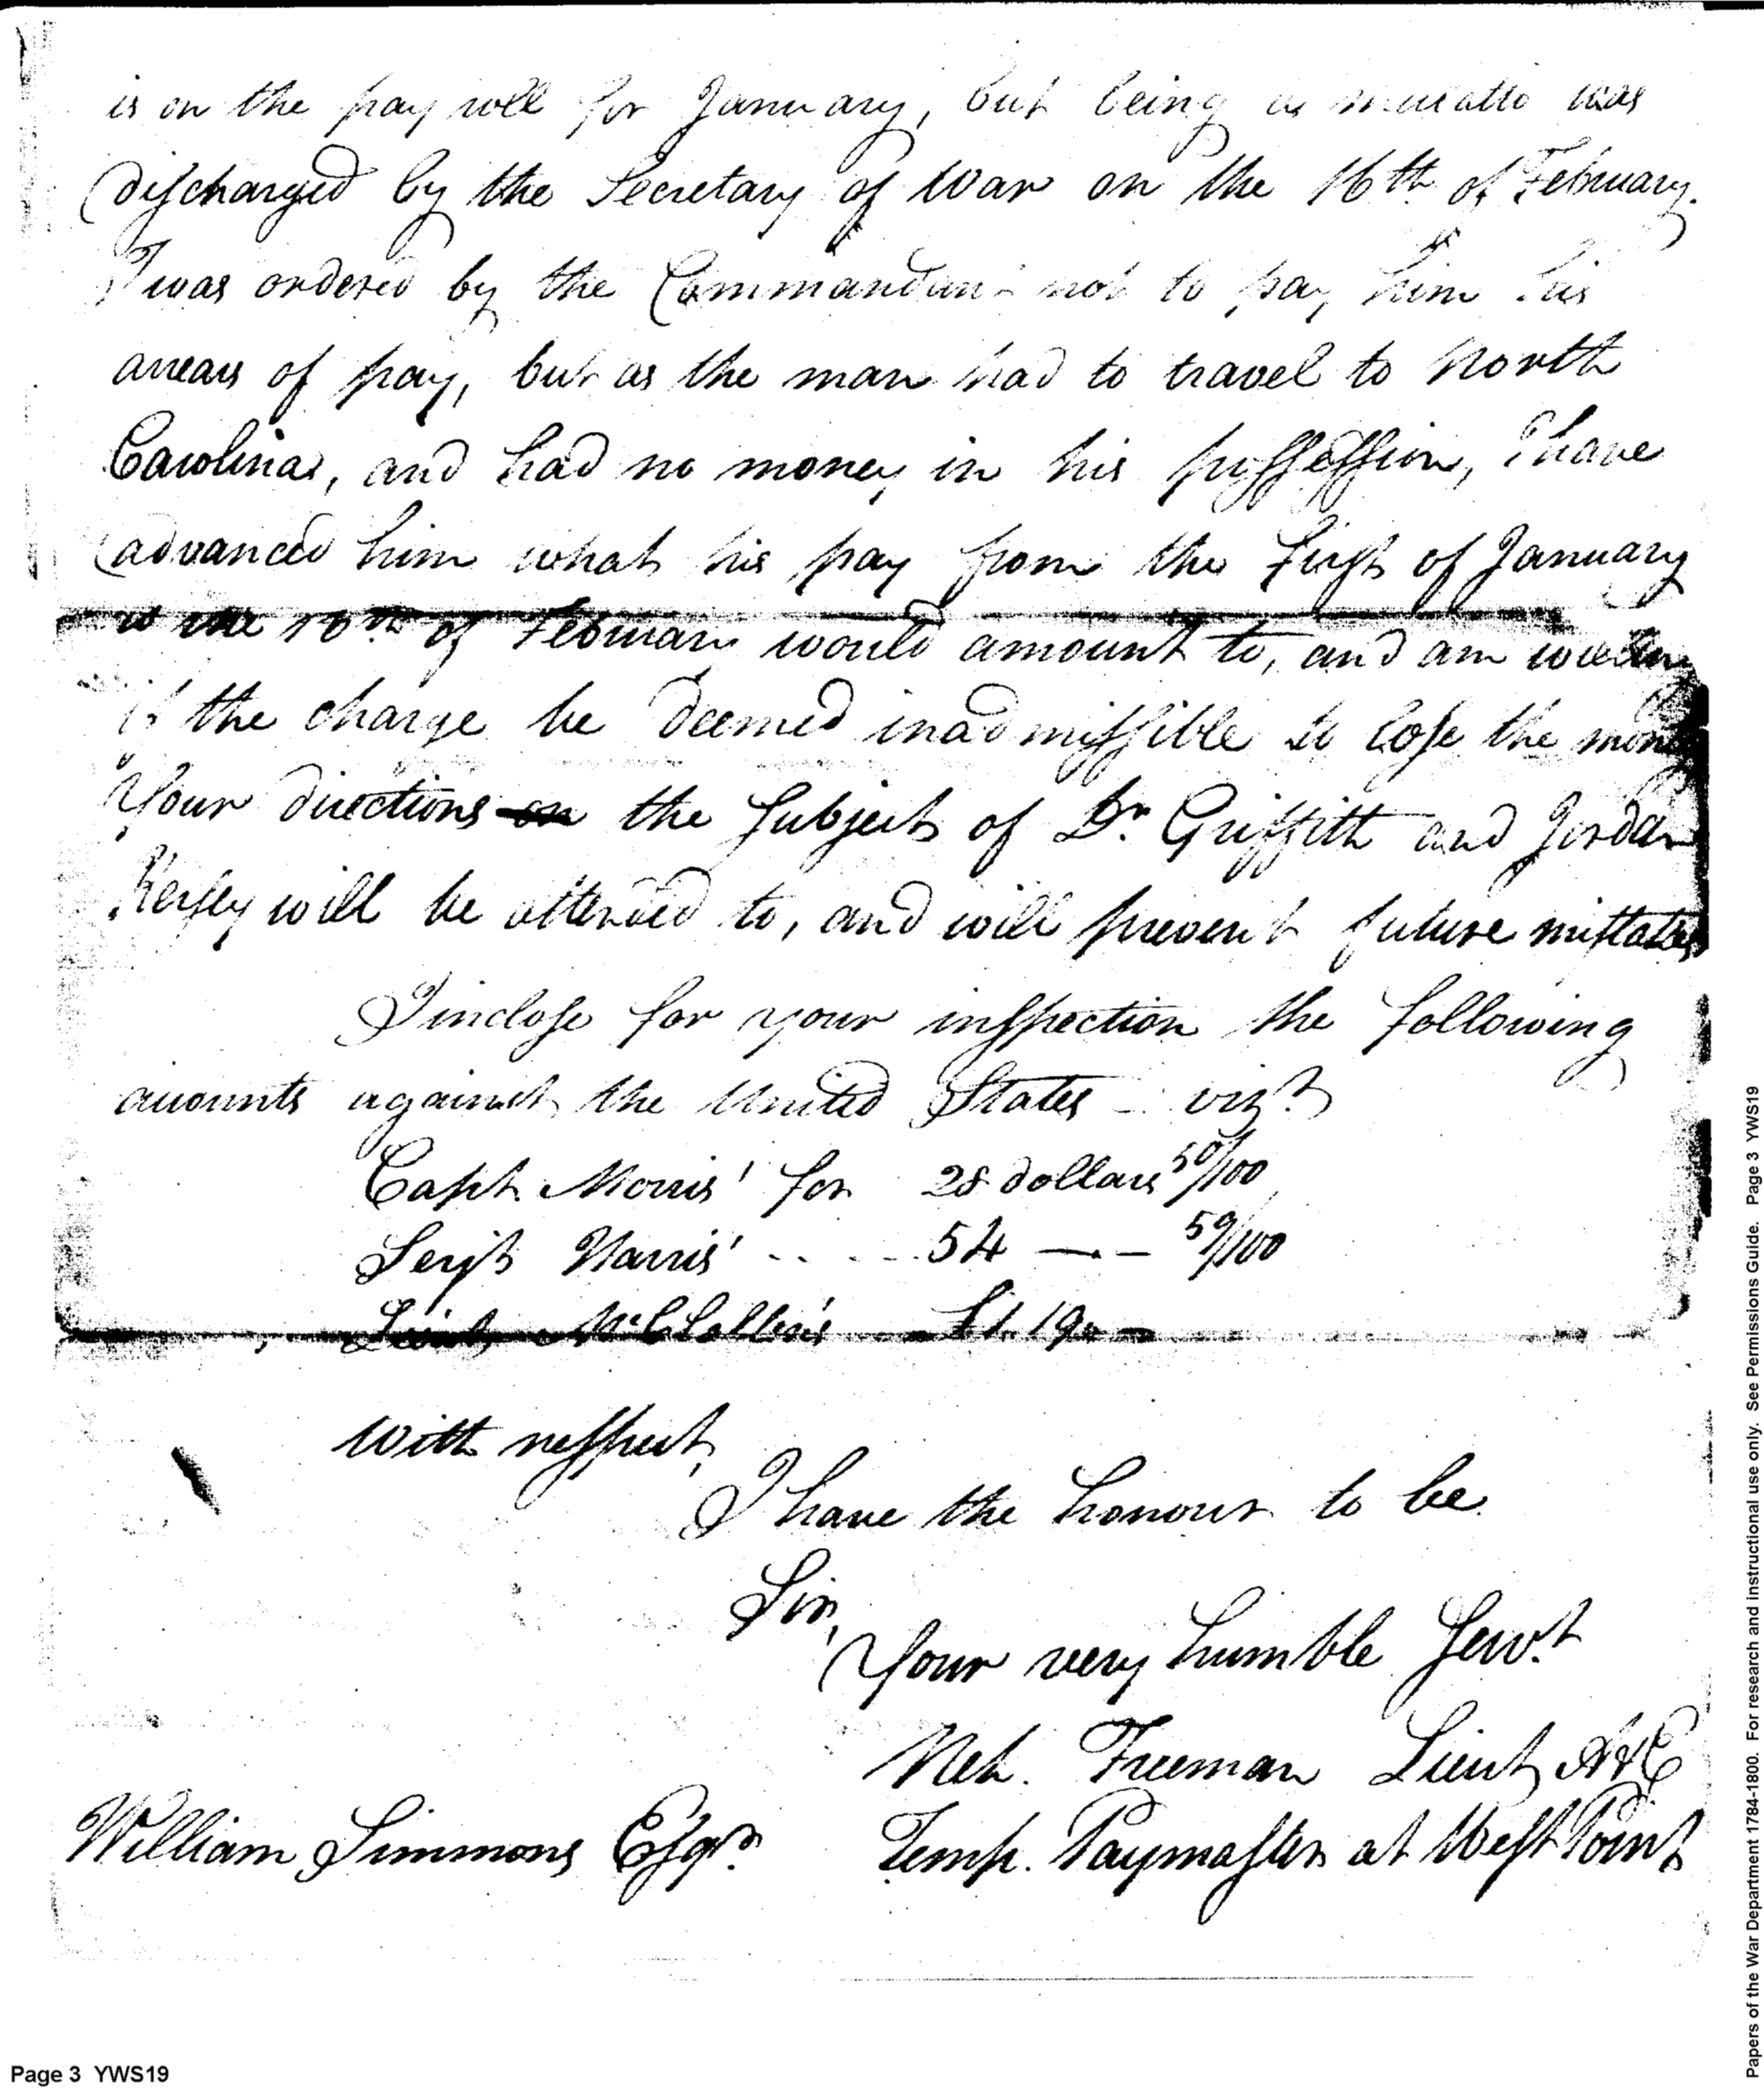 is on the pay roll for January, but being a mulatto was
discharged by the Secretary of War on the 16th of February.
I was ordered by the Commandant not to pay him his
arrears of pay, but as the man had to travel to North
Carolina, and had no money in his possession, I have
advanced him what his pay from the first of January
to the 16th of February would amount to, and am willing
if the charge be deemed inadmissible to lose the money
Your directions on the subject of Dr. Griffith and Jordan
Kersey will be attended to, and will prevent future mistakes
I inclose for your inspection the following
accounts against the United States - vizt
Capt. Morris' for 28 dollars 50/100
Serjt Harris' - - - - 54 — — 59/100
Lieut McClellan's £1.19
with respect,
I have the honour to be
Sir,
Your very humble Servt
Neh. Freeman Lieut A&E
William Simmons Esqr. Temp. Paymaster at West Point
Page 3 YWS19
Papers of the War Department 1784-1800. For research and instructional use only. See Permissions Guide. Page 3 YWS19